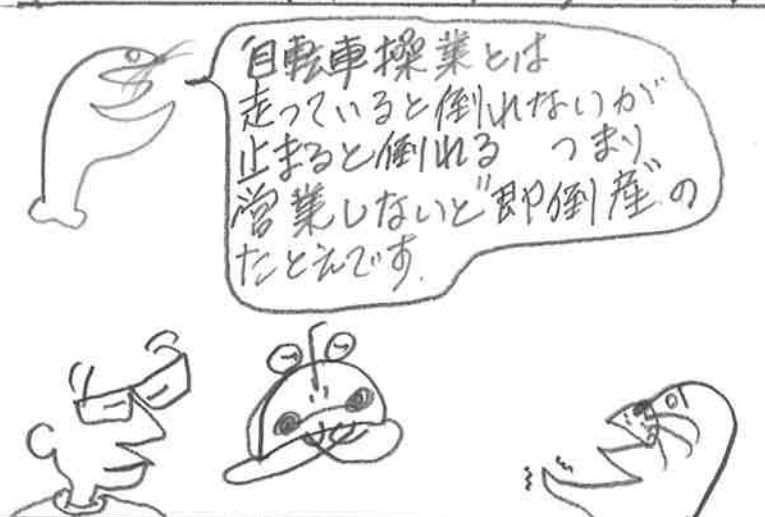 自転車操業とは
走っていると倒れないが
止まると倒れる つまり
営業しないと"即倒産"の
たとえです.